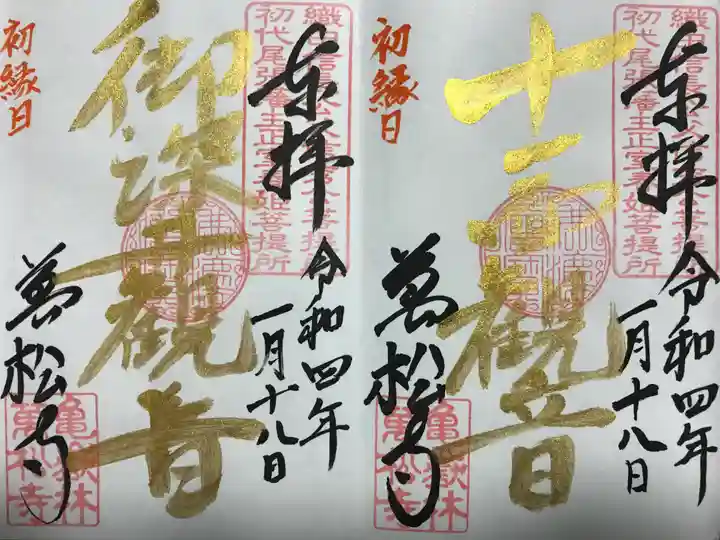 奉拝
令和四年
一月十八日
十一面観音
萬松寺
初縁日
織田信長公父信秀公菩提所
初代尾張藩主正室春姫菩提所
亀嶽林
萬松寺
奉拝
令和四年
一月十八日
御深井観音
萬松寺
初縁日
織田信長公父信秀公菩提所
初代尾張藩主正室春姫菩提所
亀嶽林
萬松寺